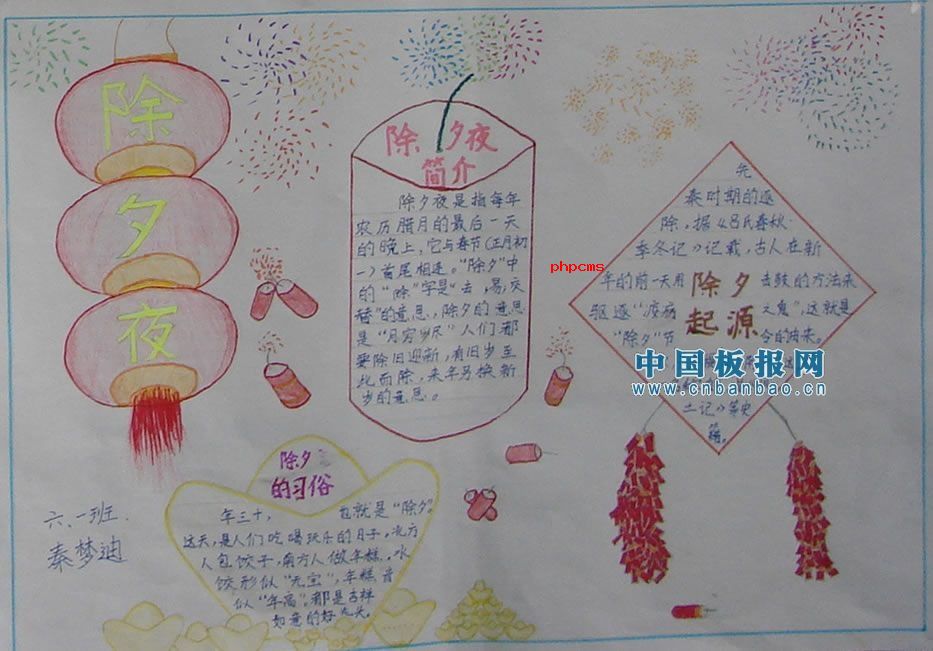 除
夕
夜
除夕夜
简介
除夕夜是指每年
农历腊月的最后一天
的晚上,它与春节(正月初
一)首尾相连。“除夕”中
的“除”字是“去,易,交
替”的意思,除夕的意思
是“月穷岁尽”人们都
要除旧迎新,有旧岁至
此而除,来年另换新
岁的意思。
phpcms
先
秦时期的逐
除,据《吕氏春秋·
季冬记》记载,古人在新
年的前一天用
击鼓的方法来
驱逐“疫疠
之鬼”,这就是
“除夕”节
令的由来。
除夕
起源
中国板报网
www.cnbanbao.cn
土记》等史
籍。
除夕
的习俗
年三十, 也就是“除夕”。
这天,是人们吃喝玩乐的日子。北方
人包饺子,南方人做年糕。水
饺形似“元宝”,年糕音
似“年高”,都是吉祥
如意的好兆头。
六、一班.
秦梦迪